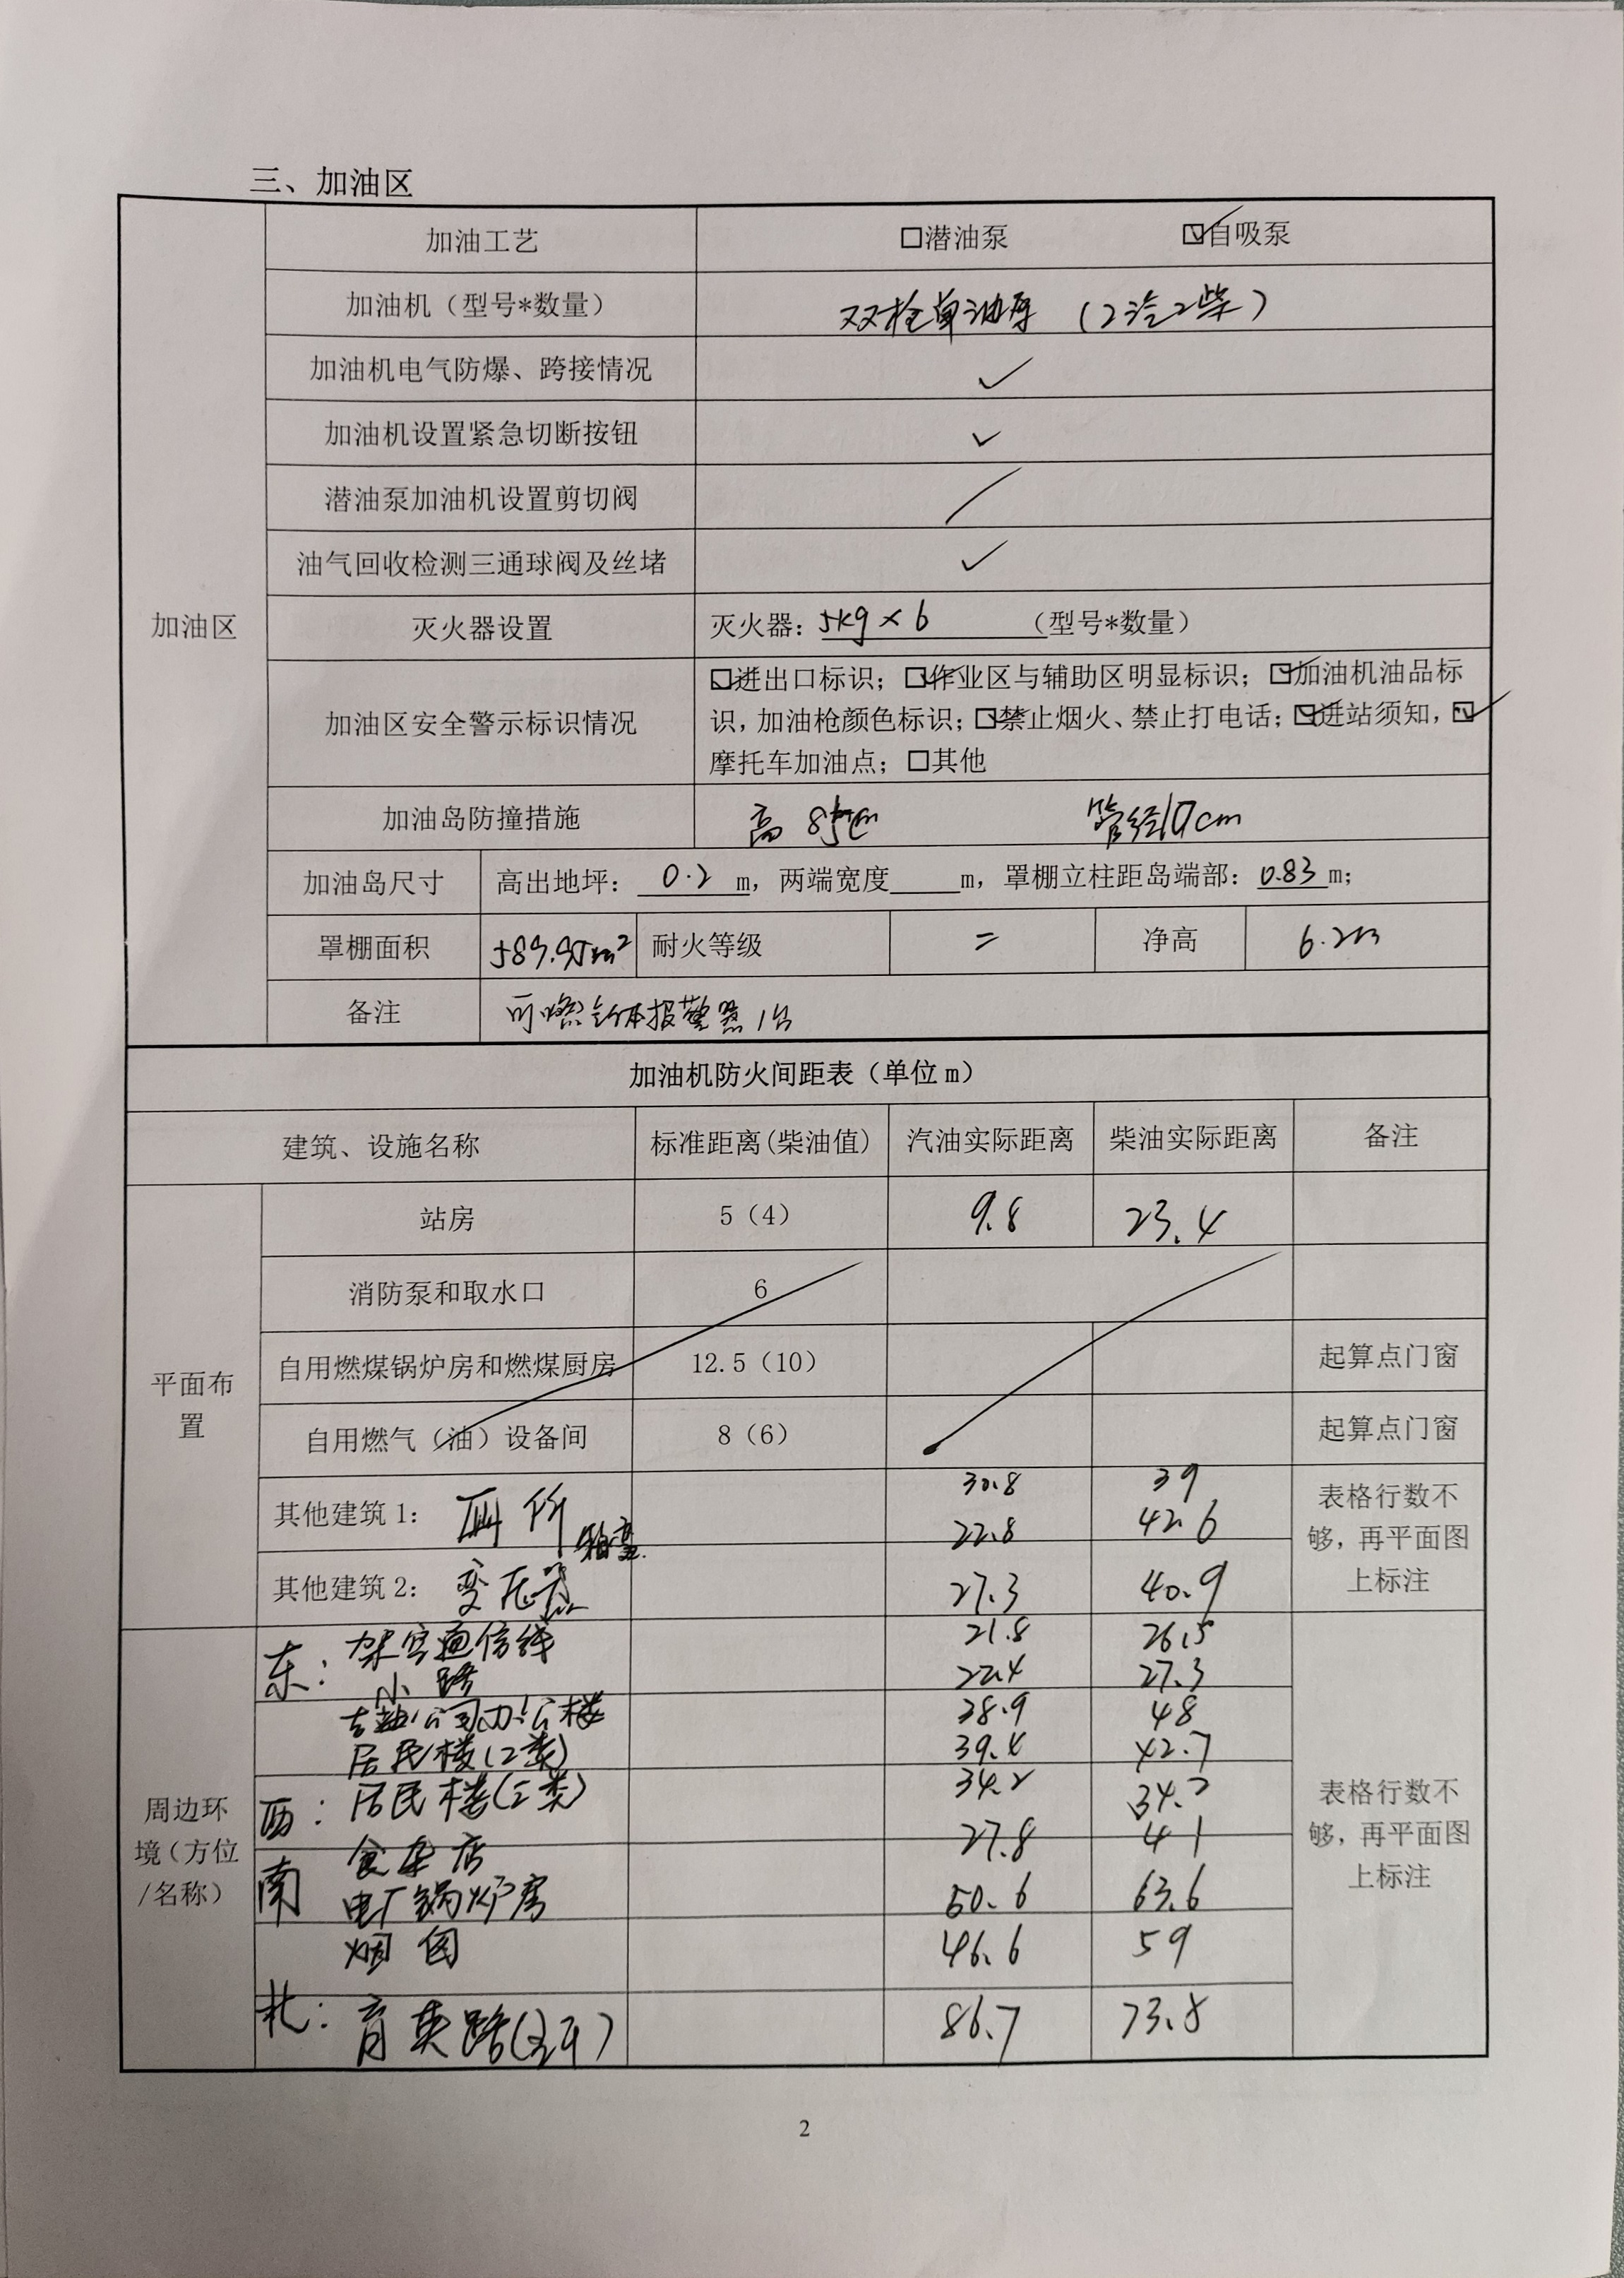 三、加油区
加油区
加油工艺 □潜油泵 ☑自吸泵
加油机（型号*数量） 双枪单油品（2汽2柴）
加油机电气防爆、跨接情况 ✓
加油机设置紧急切断按钮 ✓
潜油泵加油机设置剪切阀 /
油气回收检测三通球阀及丝堵 ✓
灭火器设置 灭火器：5kg×6（型号*数量）
加油区安全警示标识情况
☑进出口标识；☑作业区与辅助区明显标识；☑加油机油品标
识，加油枪颜色标识；☑禁止烟火、禁止打电话；☑进站须知，☑
摩托车加油点；□其他
加油岛防撞措施 高 管径 cm
加油岛尺寸 高出地坪：0.2 m，两端宽度 m，罩棚立柱距岛端部：0.83 m；
罩棚面积 m² 耐火等级 二 净高 6.2m
备注 可燃气体报警器1台
加油机防火间距表（单位m）
建筑、设施名称 标准距离(柴油值) 汽油实际距离 柴油实际距离 备注
平面布
置
站房 5（4） 9.8 23.4
消防泵和取水口 6
自用燃煤锅炉房和燃煤厨房 12.5（10） 起算点门窗
自用燃气（油）设备间 8（6） 起算点门窗
其他建筑1： 厕所 30.8 39
22.8 42.6
其他建筑2： 变压器 27.3 40.9
表格行数不
够，再平面图
上标注
周边环
境（方位
/名称）
东：架空通信线 21.8 26.5
小路 22.4 27.3
公司办公楼 38.9 48
居民楼(2类) 39.4 42.7
西：居民楼(2类) 34.2 34.2
食杂店 27.8 41
南 电厂锅炉房 50.6 63.6
烟囱 46.6 59
北：育英路 86.7 73.8
表格行数不
够，再平面图
上标注
2